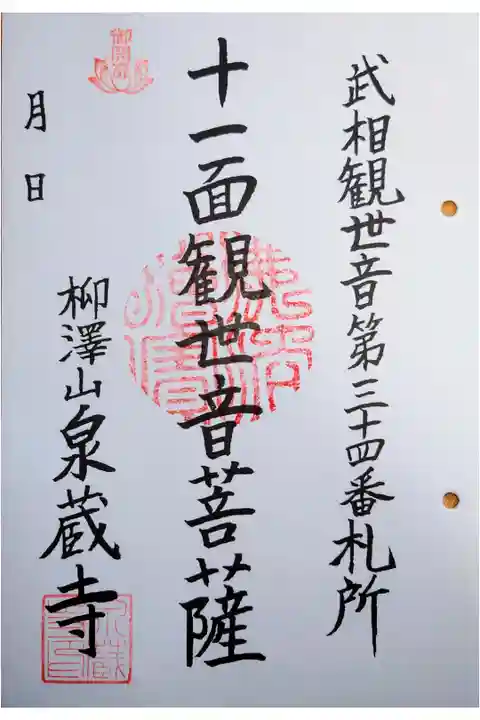 武相観世音第三十四番札所
十一面観世音菩薩
月 日
柳澤山泉蔵寺